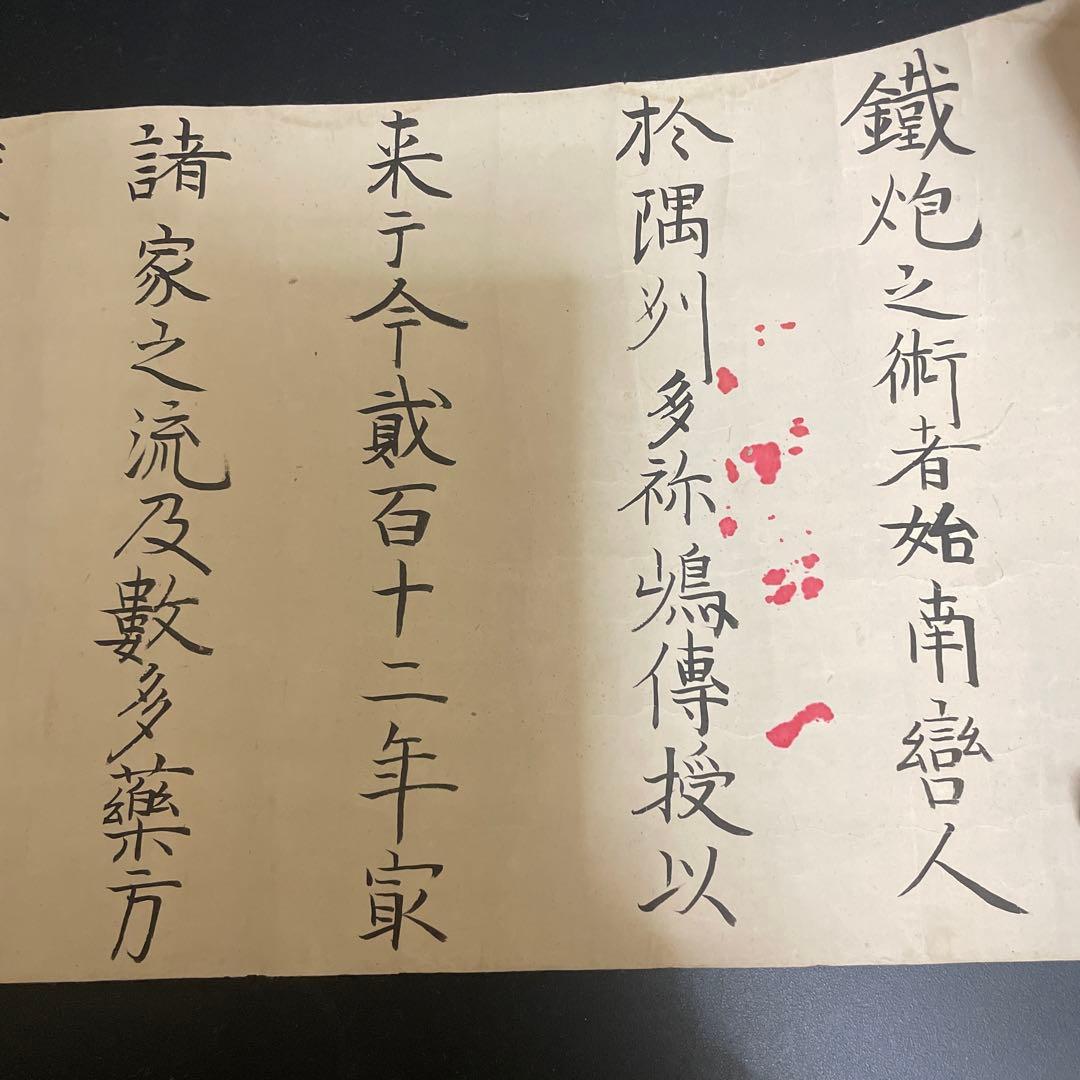 鐵炮之術者始南巒人
於隅刕多祢嶋傳授以
来于今貮百十二年㝡
諸家之流及數多藥方